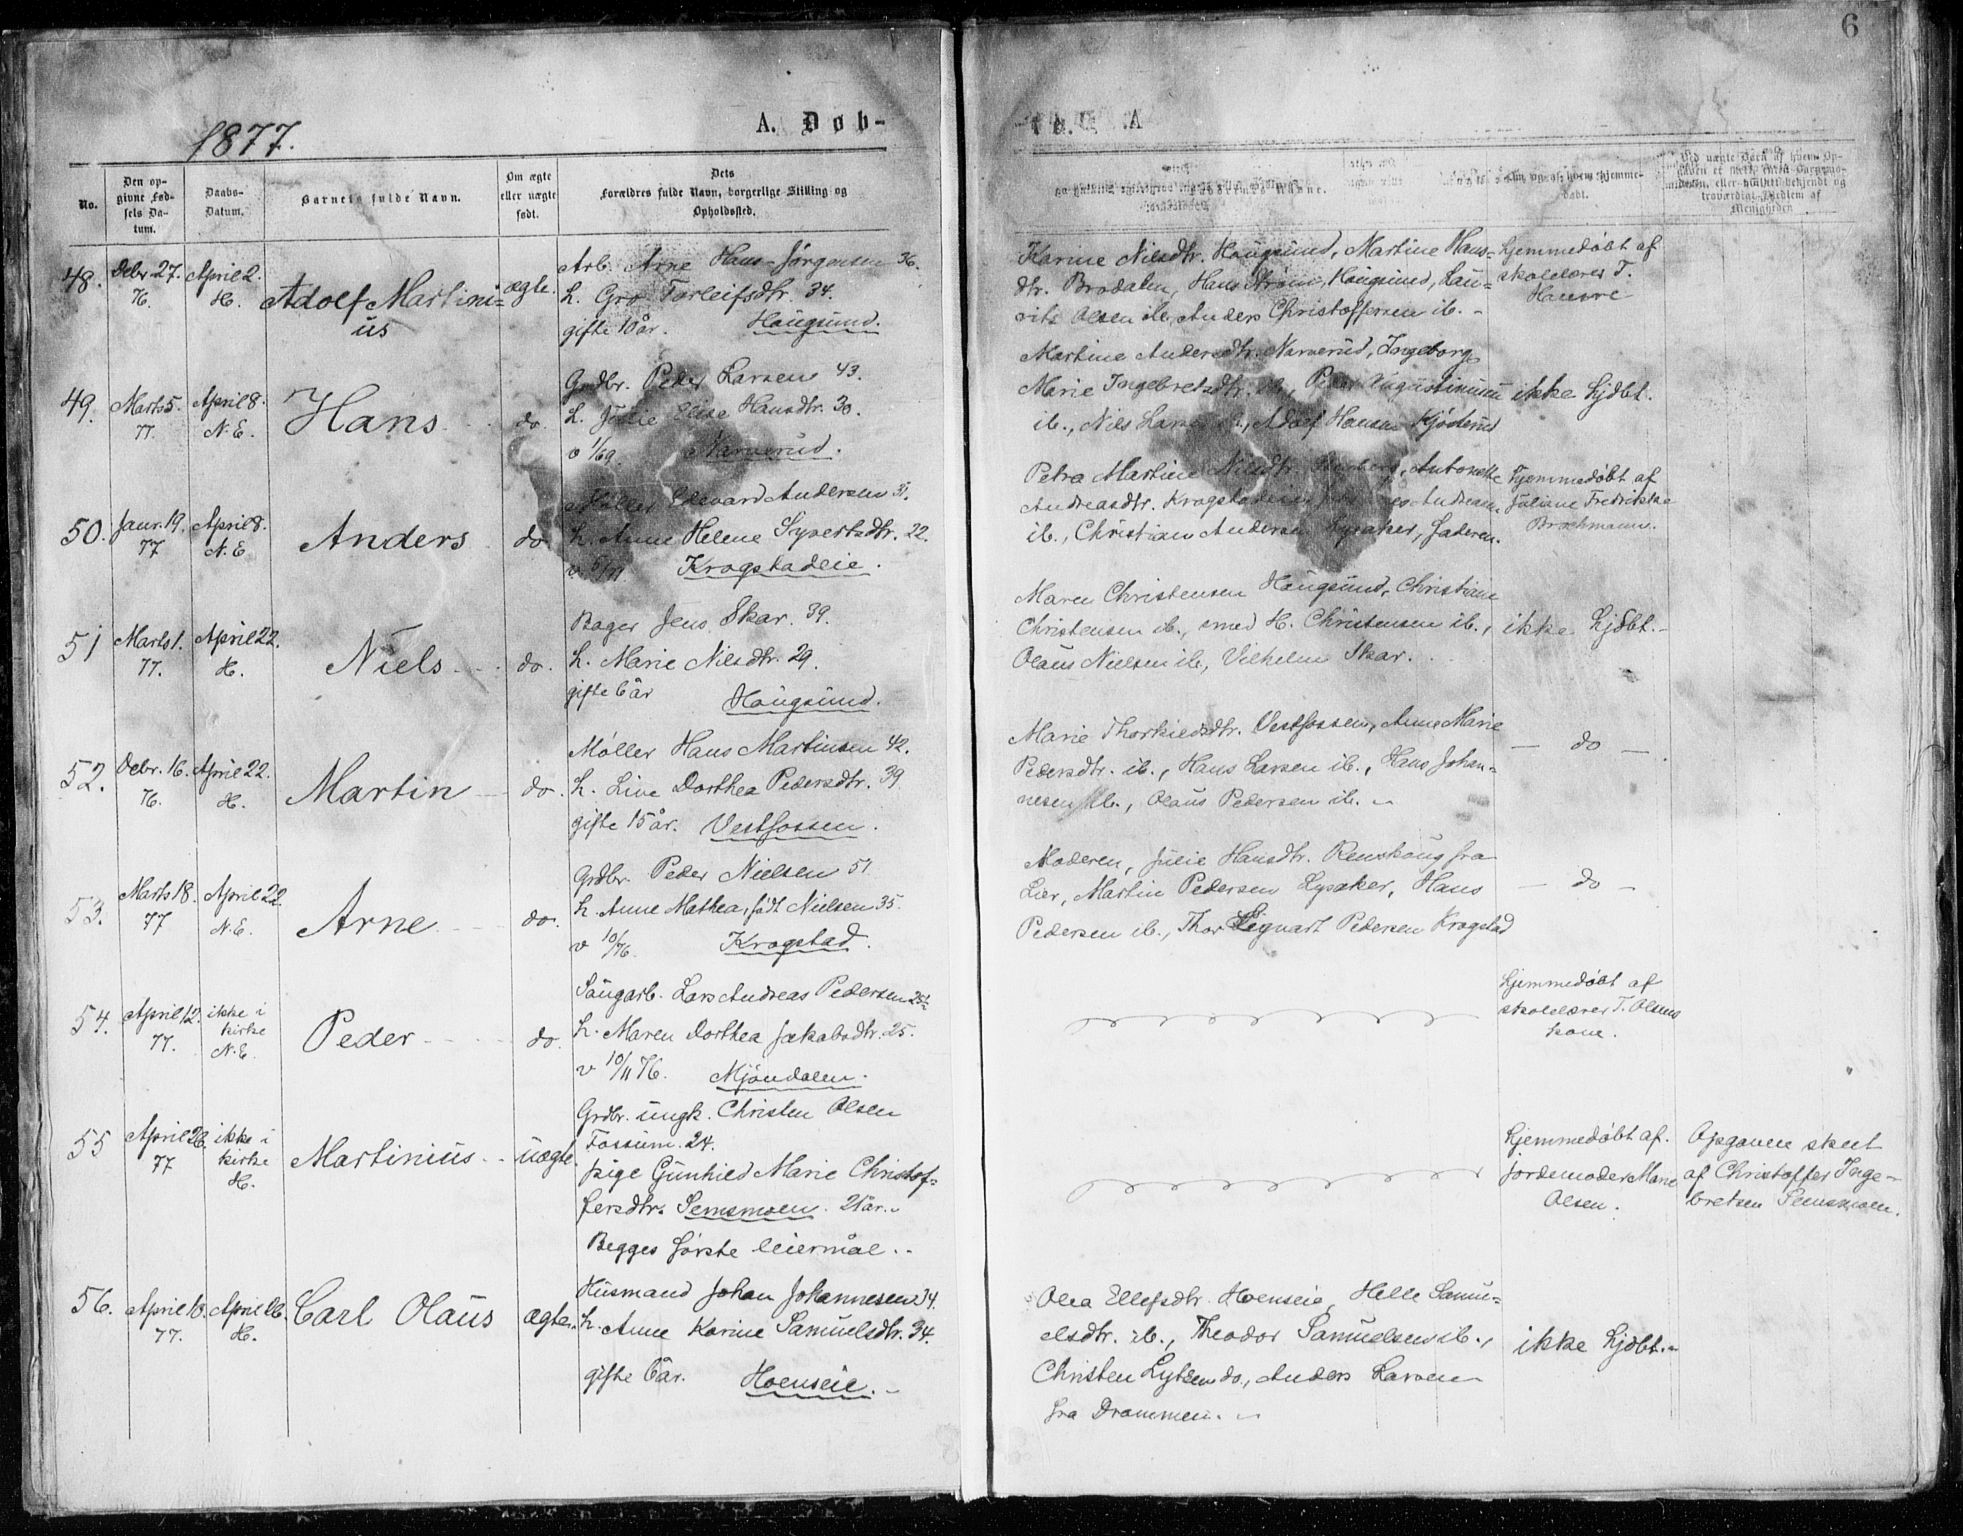 6
1877.
A. Døb-
No.
Den op-
givne Fød-
sels Da-
tum.
Daabs-
Datum.
Barnets fulde Navn.
Om ægte
eller uægte
født.
Dets
Forældres fulde Navn, borgerlige Stilling og
Opholdssted.
48.
Debr. 27.
76.
April 2.
H.
Adolf Martini=
us
ægte.
Arb. Arne Hans Jørgensen 36.
h. Gro Torleifsdtr. 34.
gifte 10 år. Hougsund.
Karine Nilsdtr. Hougsund, Martine Hans=
dtr. Brodalen, Hans Strøm, Hougsund, Lau=
rits Olsen ib., Anders Christoffersen ib. -
hjemmedøbt af
skolelærer T.
49.
Marts 5.
77.
April 8.
N.E.
Hans
do.
Grdbr. Peder Larsen 43.
h. Elise Hansdtr. 30.
v 1/69. Narverud.
Martine Andersdtr. Narverud, Ingeborg
Marie Ingebretsdtr. ib., Peder
ib., Nils Larsen ib., Adolf Hansen
ikke hjdbt.
50.
Janr. 19.
77
April 8.
N.E.
Anders
do.
Edevard Andersen 31.
h. Anne Helene Syvertsdtr. 22.
Krogstadeie.
Petra Martine Nilsdtr. Antonette
Andreasdtr. Krogstadeie, Andersen
ib., Christian Andersen Lysaker, faderen.
hjemmedøbt af
Juliane Fredrikke
Brochmann.
51
Marts 1.
77.
April 22.
H.
Niels
do.
Bager Jens Skar. 39.
h. Marie Nilsdtr. 29.
gifte 6 år Hougsund.
Maren Christensen Hougsund, Christiane
Christensen ib., smed H. Christensen ib.,
Olaus Nielsen ib., Vilhelm Skar.
ikke hjdbt. -
52.
Debr. 16.
76.
April 22.
H.
Martin
do.
Møller Hans Martinsen 42.
h. Live Dorthea Pedersdtr. 39
gifte 15 år. Vestfossen.
Marie Thorkildsdtr. Vestfossen, Anne Marie
Pedersdtr. ib., Hans Larsen ib., Hans Johan=
nesen ib., Olaus Pedersen ib. -
- do -
53.
Marts 18.
77
April 22.
N.E.
Arne
do.
Grdbr. Peder Nielsen 51
h. Anne Mathea, født Nielsen 35.
v 10/76. Krogstad.
Moderen, Julie Hansdtr. Renskoug fra
Lier, Martin Pedersen Lysaker, Hans
Pedersen ib., Thor Pedersen Krogstad
- do -
54.
April 12.
77.
ikke i
kirke
N.E.
Peder
do.
Saugarb. Lars Andreas Pedersen
h. Maren Dorthea Jakobsdtr. 25.
v 10/11 76. Mjøndalen.
hjemmedøbt af
skolelærer T. Olsens
kone.
55
April 26.
77
ikke i
kirke
H.
Martinius
uægte.
Grdbr. ungk. Christen Olsen
Fossum. 24.
pige Gunhild Marie Christof=
fersdtr. Semsmoen. 21 år.
Begges første leiermål. -
hjemmedøbt af.
jordemoder Marie
Olsen.
Opgaven skeet
af Christoffer Inge=
bretsen Semsmoen.
56.
April 10.
77.
April 26.
H.
Carl Olaus
ægte.
Husmand Johan Johannesen 34.
h. Anne Karine Samuelsdtr. 34.
gifte 6 år. Hoenseie. -
Olea Ellefsdtr. Hoenseie, Helle Samu=
elsdtr. ib., Theodor Samuelsen ib.,
Christen do., Anders Larsen
fra Drammen. -
ikke hjdbt. -